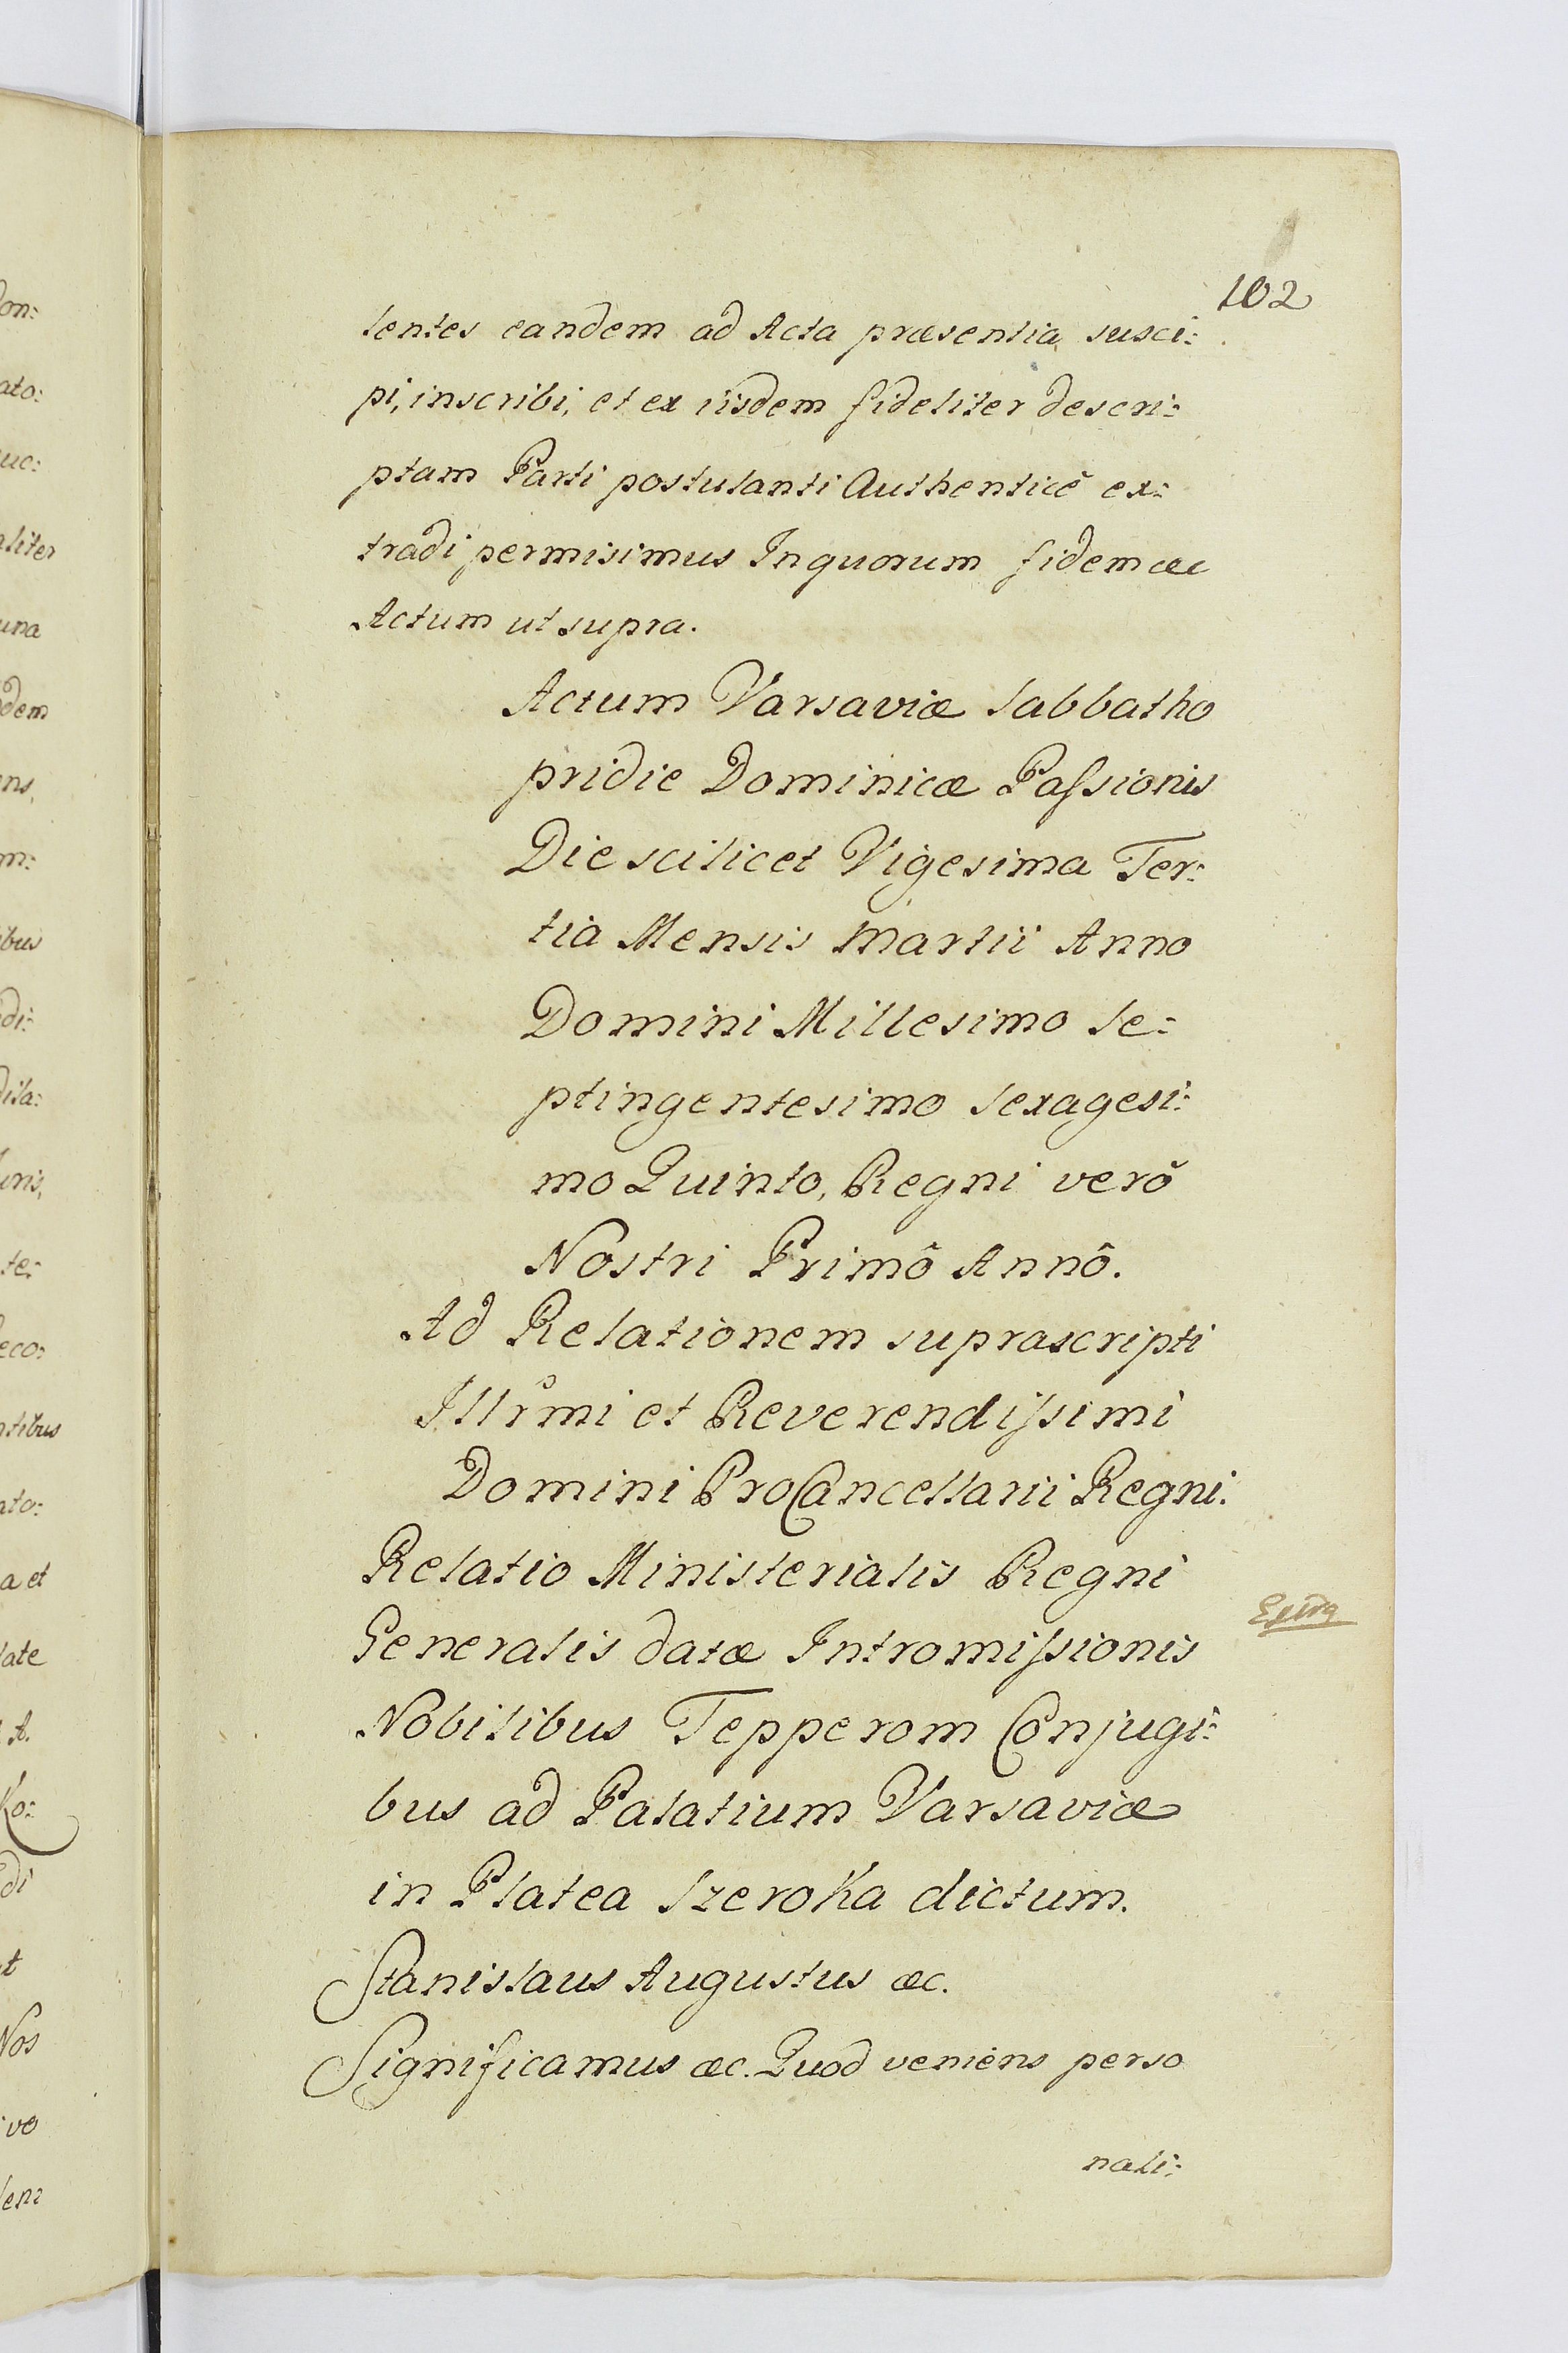 102
tentes eandem ad Acta præsentia susci:
pi, inscribi, et ex iisdem fideliter descri:
ptam Parti postulanti Authenticè ex:
tradi permisimus Inquorum fidem &c
Actum ut supra.
Actum Varsaviæ Sabbatho
pridie Dominicæ Passionis
Die scilicet Vigesima Ter:
tia Mensis Martii Anno
Domini Millesimo Se:
ptingentesimo Sexagesi:
mo Quinto, Regni verò
Nostri Primô Annô.
Ad Relationem suprascripti
Illrmi et Reverendissimi
Domini ProCancellarii Regni.
Relatio Ministerialis Regni
Generalis datæ Intromissionis
Nobilibus Tepperom Conjugi:
bus ad Palatium Varsaviæ
in Platea Szeroka dictum.
Stanislaus Augustus &c.
Significamus &c. Quod veniens perso
nali:
on:
ato:
uc:
aliter
una
dem
ens,
m:
ibus
di:
dila:
te:
eco:
ntibus
ato:
a et
late
A.
Ko:
di
t
Nos
ivo